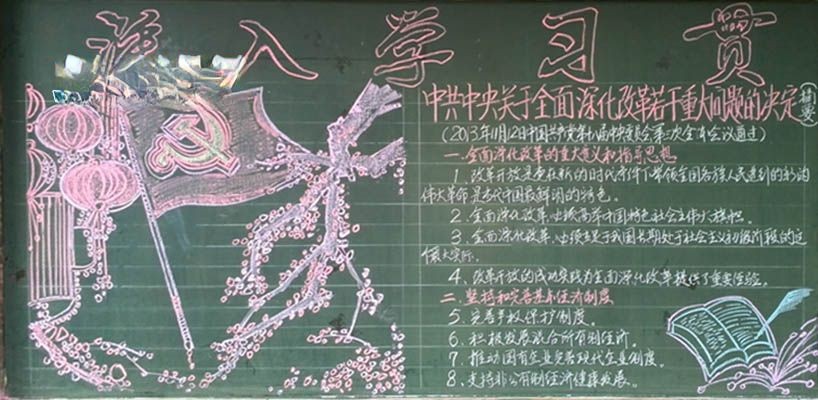 深入学习贯
中共中央关于全面深化改革若干重大问题的决定(摘要)
(2013年11月12日中国共产党第十八届中央委员会第三次全体会议通过)
一.全面深化改革的重大意义和指导思想
1、改革开放是党在新的时代条件下带领全国各族人民进行的新的
伟大革命 是当代中国最鲜明的特色。
2、全面深化改革,必须高举中国特色社会主义伟大旗帜。
3、全面深化改革,必须立足于我国长期处于社会主义初级阶段的这
个最大实际.
4、改革开放的成功实践为全面深化改革提供了重要经验。
二.坚持和完善基本经济制度
5、完善产权保护制度。
6、积极发展混合所有制经济。
7、推动国有企业完善现代企业制度。
8、支持非公有制经济健康发展。